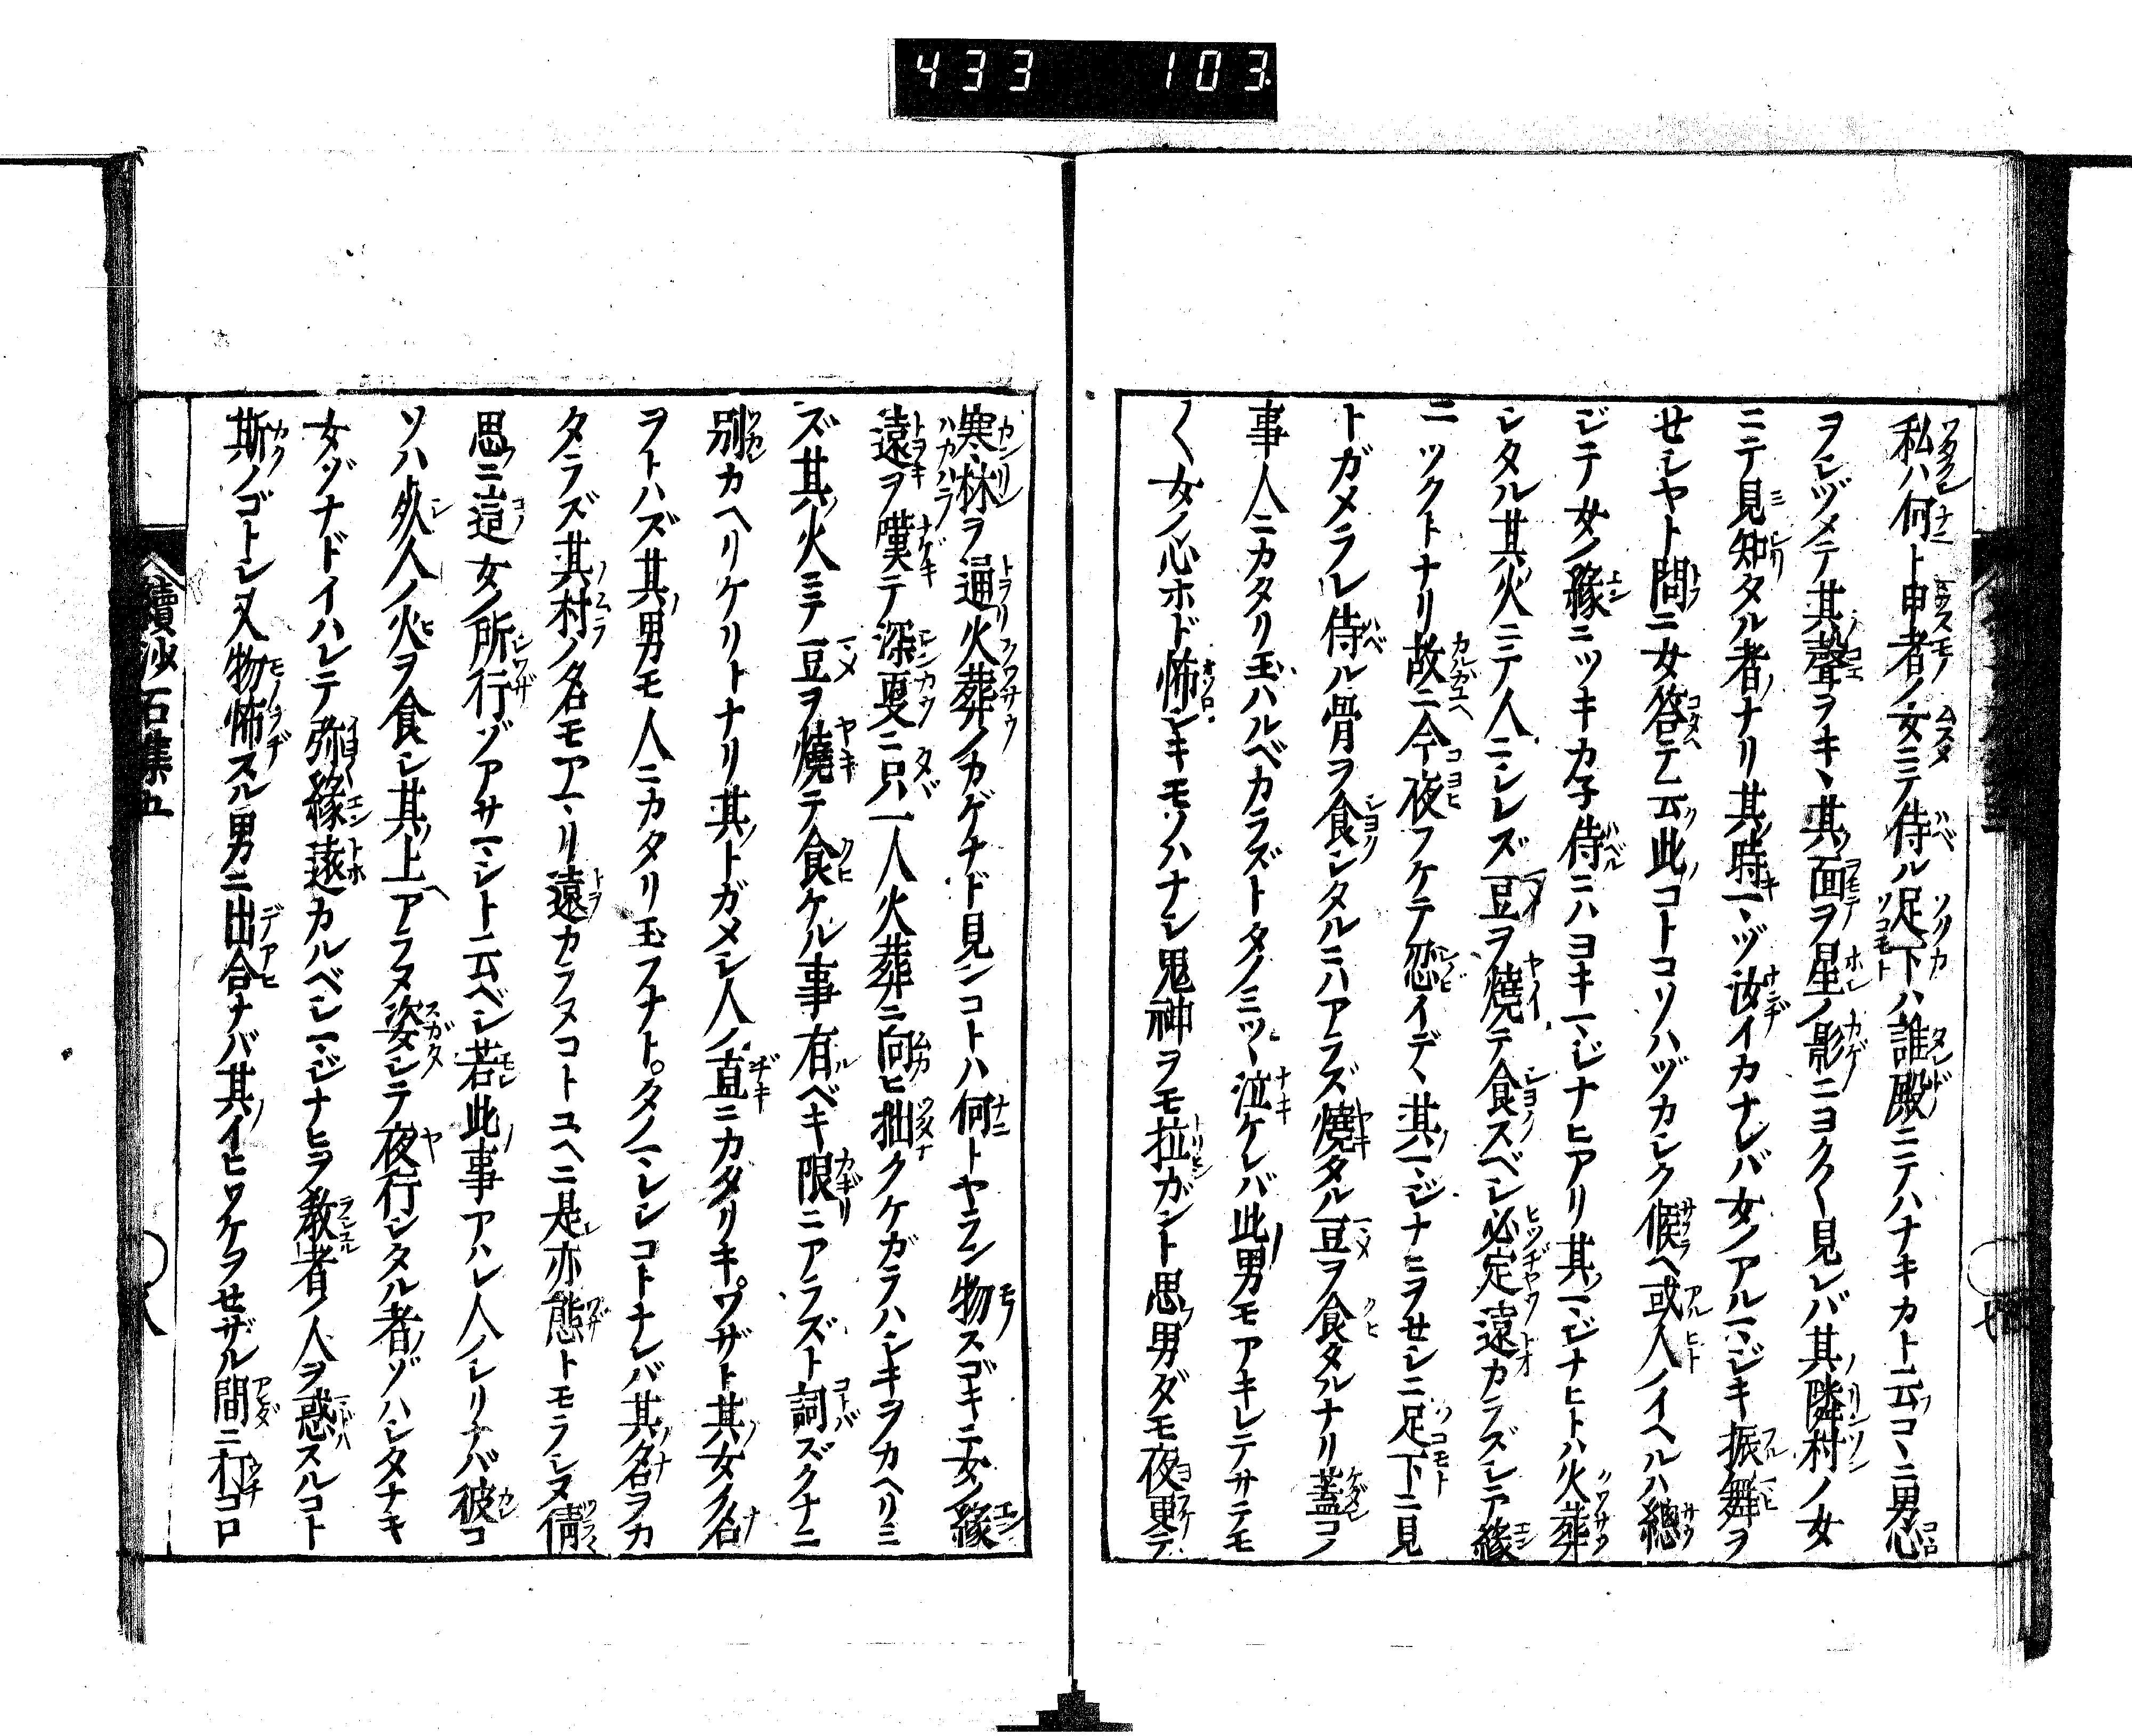 433 103
私ハ何ト申者ノ女ニテ侍ル足下ハ誰殿ニテハナキカト云コヽニ男心
ヲシヅメテ其聲ヲキヽ其面ヲ星ノ影ニヨク〱見レバ其隣村ノ女
ニテ見知タル者ナリ其時マヅ汝イカナレバ女ノアルマジキ振舞ヲ
セシヤト問ニ女答テ云此コトコソハヅカシク候ヘ或人ノイヘルハ總
ジテ女ノ縁ニツキカ子侍ニハヨキマジナヒアリ其マジナヒトハ火葬
シタル其火ニテ人ニシレズ豆ヲ燒テ食スベシ必定遠カラズシテ縁
ニツクトナリ故ニ今夜フケテ恋イデヽ其マジナニヲセシニ足下ニ見
トガメラレ侍ル骨ヲ食シタルニハアラズ燒タル豆ヲ食タルナリ蓋コノ
事人ニカタリ玉ハルベカラズトタノミツヽ泣ケレバ此男モアキレテサテモ
〱女ノ心ホド怖シキモノハナシ鬼神ヲモ拉ガント思フ男ダモ夜更テ
寒林ヲ通リ火葬ノカゲナド見ンコトハ何トヤラン物スゴキニ女ノ縁
遠ヲ嘆テ深更ニ只一人火葬ニ向ヒ拙クケガラハシキヲカヘリミ
ズ其火ニテ豆ヲ燒テ食ケル事有ベキ限ニアラズト詞ズクナニ
別カヘリケリトナリ其トガメシ人ノ直ニカタリキワザト其女ノ名
ヲトハズ其男モ人ニカタリ玉フナトタノマレシコトナレバ其名ヲカ
タラズ其村ノ名モアマリ遠カラヌコトユヘニ是亦態トモラシヌ倩
思ニ這女ノ所行ゾアサマシト云ベシ若此事アハレ人ノシリナバ彼コ
ソハ死人ノ火ヲ食シ其上アラヌ姿シテ夜行シタル者ゾハシタナキ
女ゾナドイハレテ弥縁遠カルベシマジナヒヲ教者ノ人ヲ惑スルコト
斯ノゴトシ又物怖スル男ニ出合ナバ其イヒワケヲセザル間ニ打コロ
續沙石集五
七
八